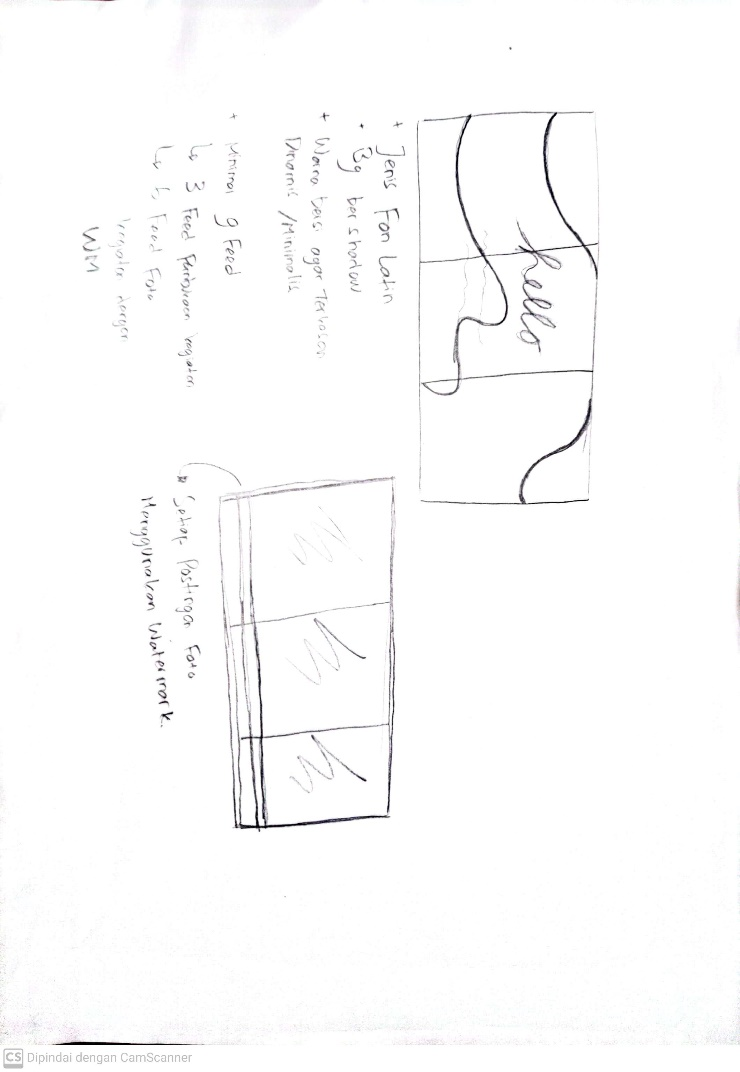 hello
+ Jenis Fon Latin
• Bg bershadow
+ Warna basi agar Terkesan
Dinamis / Minimalis
+ Minimal 9 Feed
↳ 3 Feed Kegiatan
↳ 6 Feed Foto
kegiatan dengan
WM
* Setiap Postingan Foto
Menggunakan Watermark.
CS Dipindai dengan CamScanner